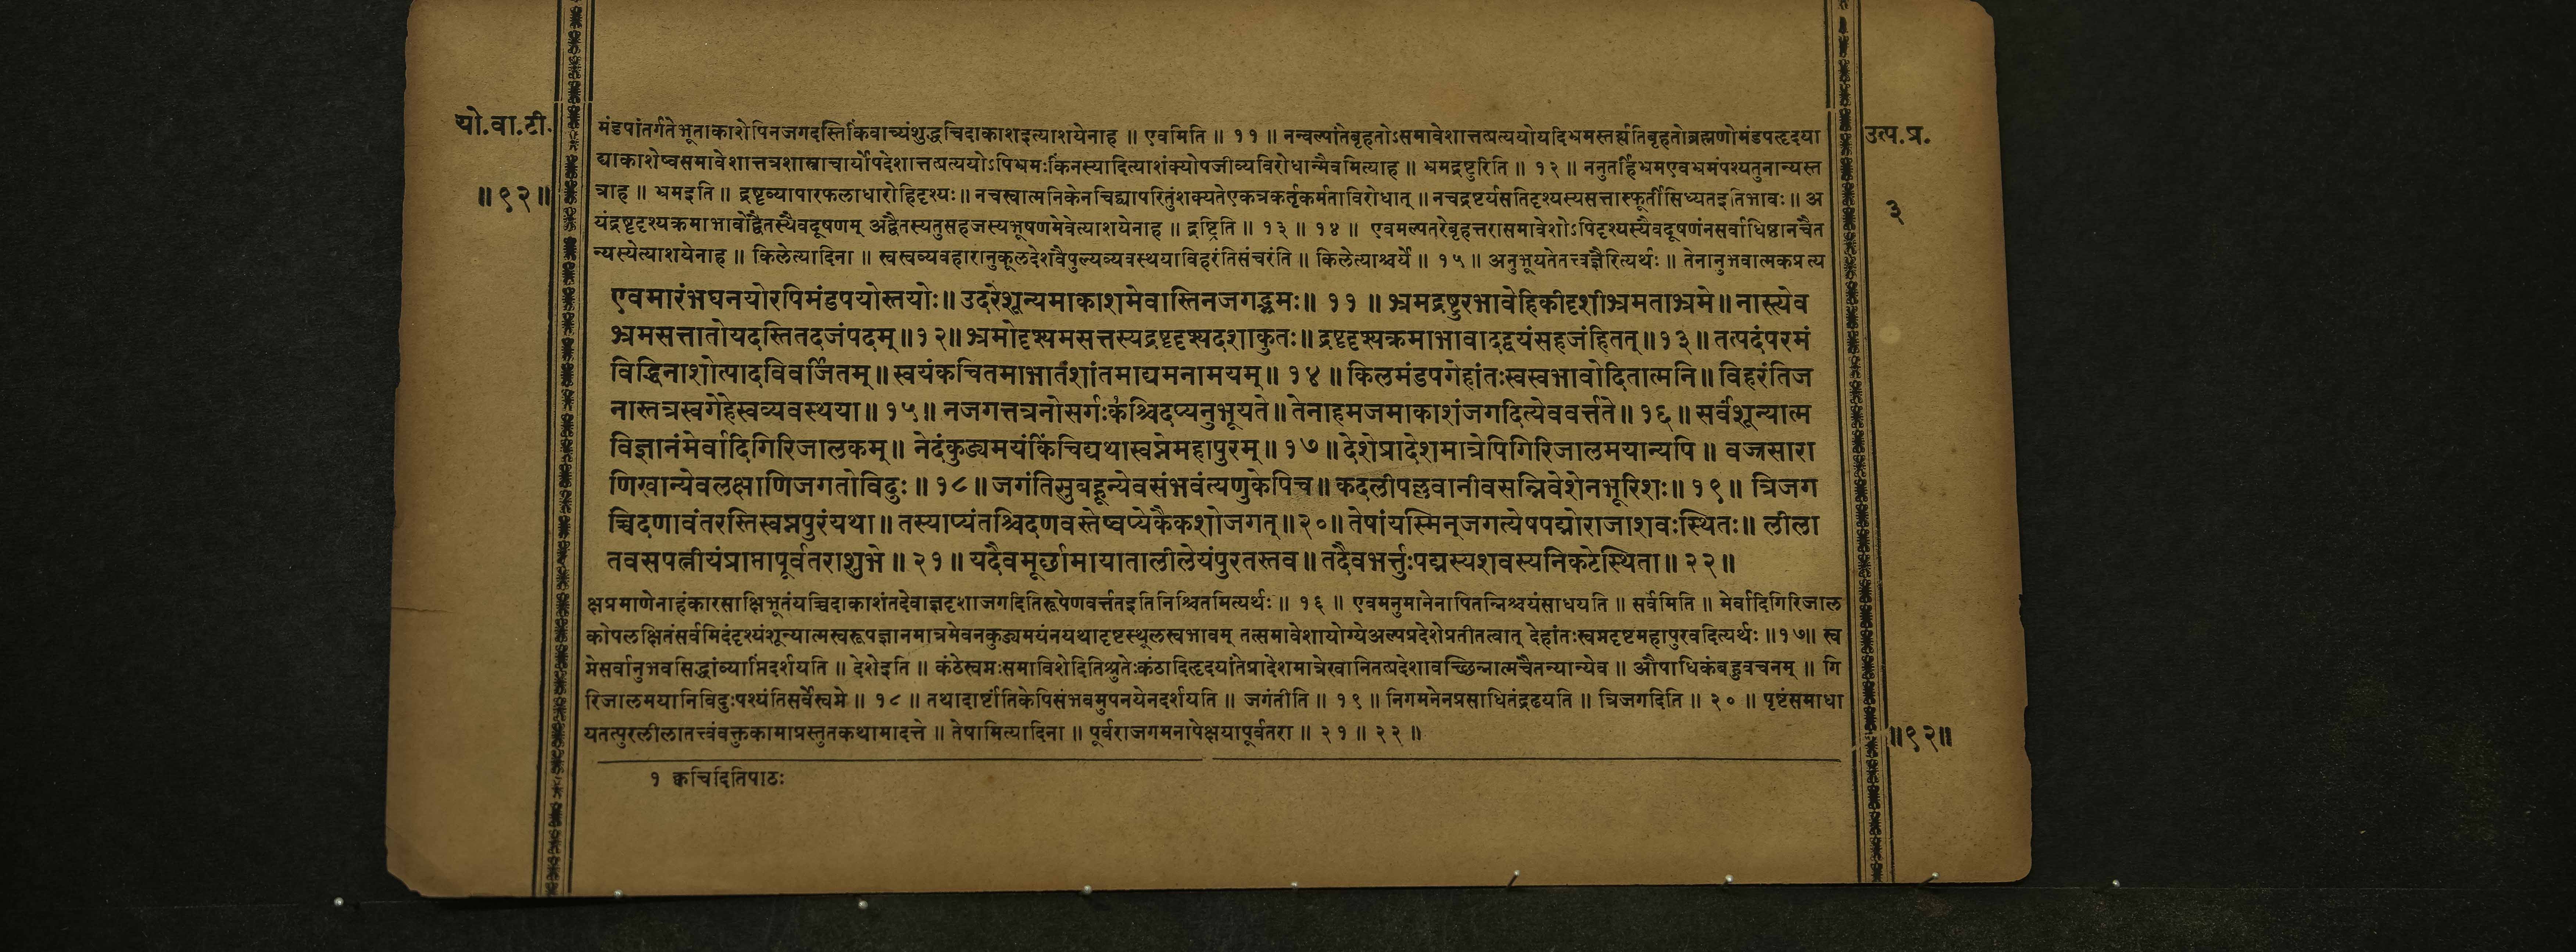 यो.वा.टी.
॥९२॥
मंडपांतर्गतेभूताकाशेपिनजगदस्तिकिंवाच्यंशुद्धचिदाकाशइत्याशयेनाह ॥ एवमिति ॥ ११ ॥ नन्वल्पांतेबृहतोऽसमावेशात्तत्प्रत्ययोयदिभ्रमस्तर्ह्यतिबृहतोब्रह्मणोमंडपहृदया
द्याकाशेष्वसमावेशात्तत्रशास्त्राचार्योपदेशात्तत्प्रत्ययोऽपिभ्रमःकिंनस्यादित्याशंक्योपजीव्यविरोधान्मैवमित्याह ॥ भ्रमद्रष्टुरिति ॥ १२ ॥ ननुतर्हिभ्रमएवभ्रमंपश्यतुनान्यस्त
त्राह ॥ भ्रमइति ॥ द्रष्टृव्यापारफलाधारोहिदृश्यः ॥ नचस्वात्मनिकेनचिद्व्यापरितुंशक्यतेएकत्रकर्तृकर्मताविरोधात् ॥ नचद्रष्टर्यसतिदृश्यस्यसत्तास्फूर्तीसिध्यतइतिभावः ॥ अ
यंद्रष्टृदृश्यक्रमाभावोद्वैतस्यैवदूषणम् अद्वैतस्यतुसहजस्यभूषणमेवेत्याशयेनाह ॥ द्रष्ट्रिति ॥ १३ ॥ १४ ॥ एवमल्पतरेबृहत्तरासमावेशोऽपिदृश्यस्यैवदूषणंनसर्वाधिष्ठानचैत
न्यस्येत्याशयेनाह ॥ किलेत्यादिना ॥ स्वस्वव्यवहारानुकूलदेशवैपुल्यव्यवस्थयाविहरंतिसंचरंति ॥ किलेत्याश्चर्ये ॥ १५ ॥ अनुभूयतेतत्त्वज्ञैरित्यर्थः ॥ तेनानुभवात्मकप्रत्य
एवमारंभघनयोरपिमंडपयोस्तयोः ॥ उदरेशून्यमाकाशमेवास्तिनजगद्भ्रमः ॥ ११ ॥ भ्रमद्रष्टुरभावेहिकीदृशीभ्रमताभ्रमे ॥ नास्त्येव
भ्रमसत्तातोयदस्तितदजंपदम् ॥ १२ ॥ भ्रमोदृश्यमसत्तस्यद्रष्टृदृश्यदशाकुतः ॥ द्रष्टृदृश्यक्रमाभावादद्वयंसहजंहितत् ॥ १३ ॥ तत्पदंपरमं
विद्धिनाशोत्पादविवर्जितम् ॥ स्वयंकचितमाभातंशांतमाद्यमनामयम् ॥ १४ ॥ किलमंडपगेहांतःस्वस्वभावोदितात्मनि ॥ विहरंतिज
नास्तत्रस्वगेहेस्वव्यवस्थया ॥ १५ ॥ नजगत्तत्रनोसर्गःक१श्चिदप्यनुभूयते ॥ तेनाहमजमाकाशंजगदित्येववर्त्तते ॥ १६ ॥ सर्वंशून्यात्म
विज्ञानंमेर्वादिगिरिजालकम् ॥ नेदंकुड्यमयंकिंचिद्यथास्वप्नेमहापुरम् ॥ १७ ॥ देशेप्रादेशमात्रेपिगिरिजालमयान्यपि ॥ वज्रसारा
णिखान्येवलक्षाणिजगतोविदुः ॥ १८ ॥ जगंतिसुबहून्येवसंभवंत्यणुकेपिच ॥ कदलीपल्लवानीवसन्निवेशेनभूरिशः ॥ १९ ॥ त्रिजग
च्चिदणावंतरस्तिस्वप्नपुरंयथा ॥ तस्याप्यंतश्चिदणवस्तेष्वप्येकैकशोजगत् ॥ २० ॥ तेषांयस्मिन्जगत्येषपद्मोराजाशवःस्थितः ॥ लीला
तवसपत्नीयंप्राप्तापूर्वतराशुभे ॥ २१ ॥ यदैवमूर्छामायातालीलेयंपुरतस्तव ॥ तदैवभर्त्तुःपद्मस्यशवस्यनिकटेस्थिता ॥ २२ ॥
क्षप्रमाणेनाहंकारसाक्षिभूतंयच्चिदाकाशंतदेवाज्ञदृशाजगदितिरूपेणवर्त्ततइतिनिश्चितमित्यर्थः ॥ १६ ॥ एवमनुमानेनापितन्निश्चयंसाधयति ॥ सर्वमिति ॥ मेर्वादिगिरिजाल
कोपलक्षितंसर्वमिदंदृश्यंशून्यात्मस्वरूपज्ञानमात्रमेवनकुड्यमयंनयथादृष्टस्थूलस्वभावम् तत्समावेशायोग्येअल्पप्रदेशेप्रतीतत्वात् देहांतःस्वप्नदृष्टमहापुरवदित्यर्थः ॥ १७ ॥ स्व
प्नेसर्वानुभवसिद्धांव्याप्तिंदर्शयति ॥ देशेइति ॥ कंठेस्वप्नःसमाविशेदितिश्रुतेःकंठादिहृदयांतेप्रादेशमात्रेखानितत्प्रदेशावच्छिन्नात्मचैतन्यान्येव ॥ औपाधिकंबहुवचनम् ॥ गि
रिजालमयानिविदुःपश्यंतिसर्वेस्वप्ने ॥ १८ ॥ तथादार्ष्टांतिकेपिसंभवमुपनयेनदर्शयति ॥ जगंतीति ॥ १९ ॥ निगमनेनप्रसाधितंद्रढयति ॥ त्रिजगदिति ॥ २० ॥ पृष्टंसमाधा
यतत्पुरलीलातत्त्वंवक्तुकामाप्रस्तुतकथामादत्ते ॥ तेषामित्यादिना ॥ पूर्वराजगमनापेक्षयापूर्वतरा ॥ २१ ॥ २२ ॥
१ क्वचिदितिपाठः
उत्प.प्र.
३
॥९२॥